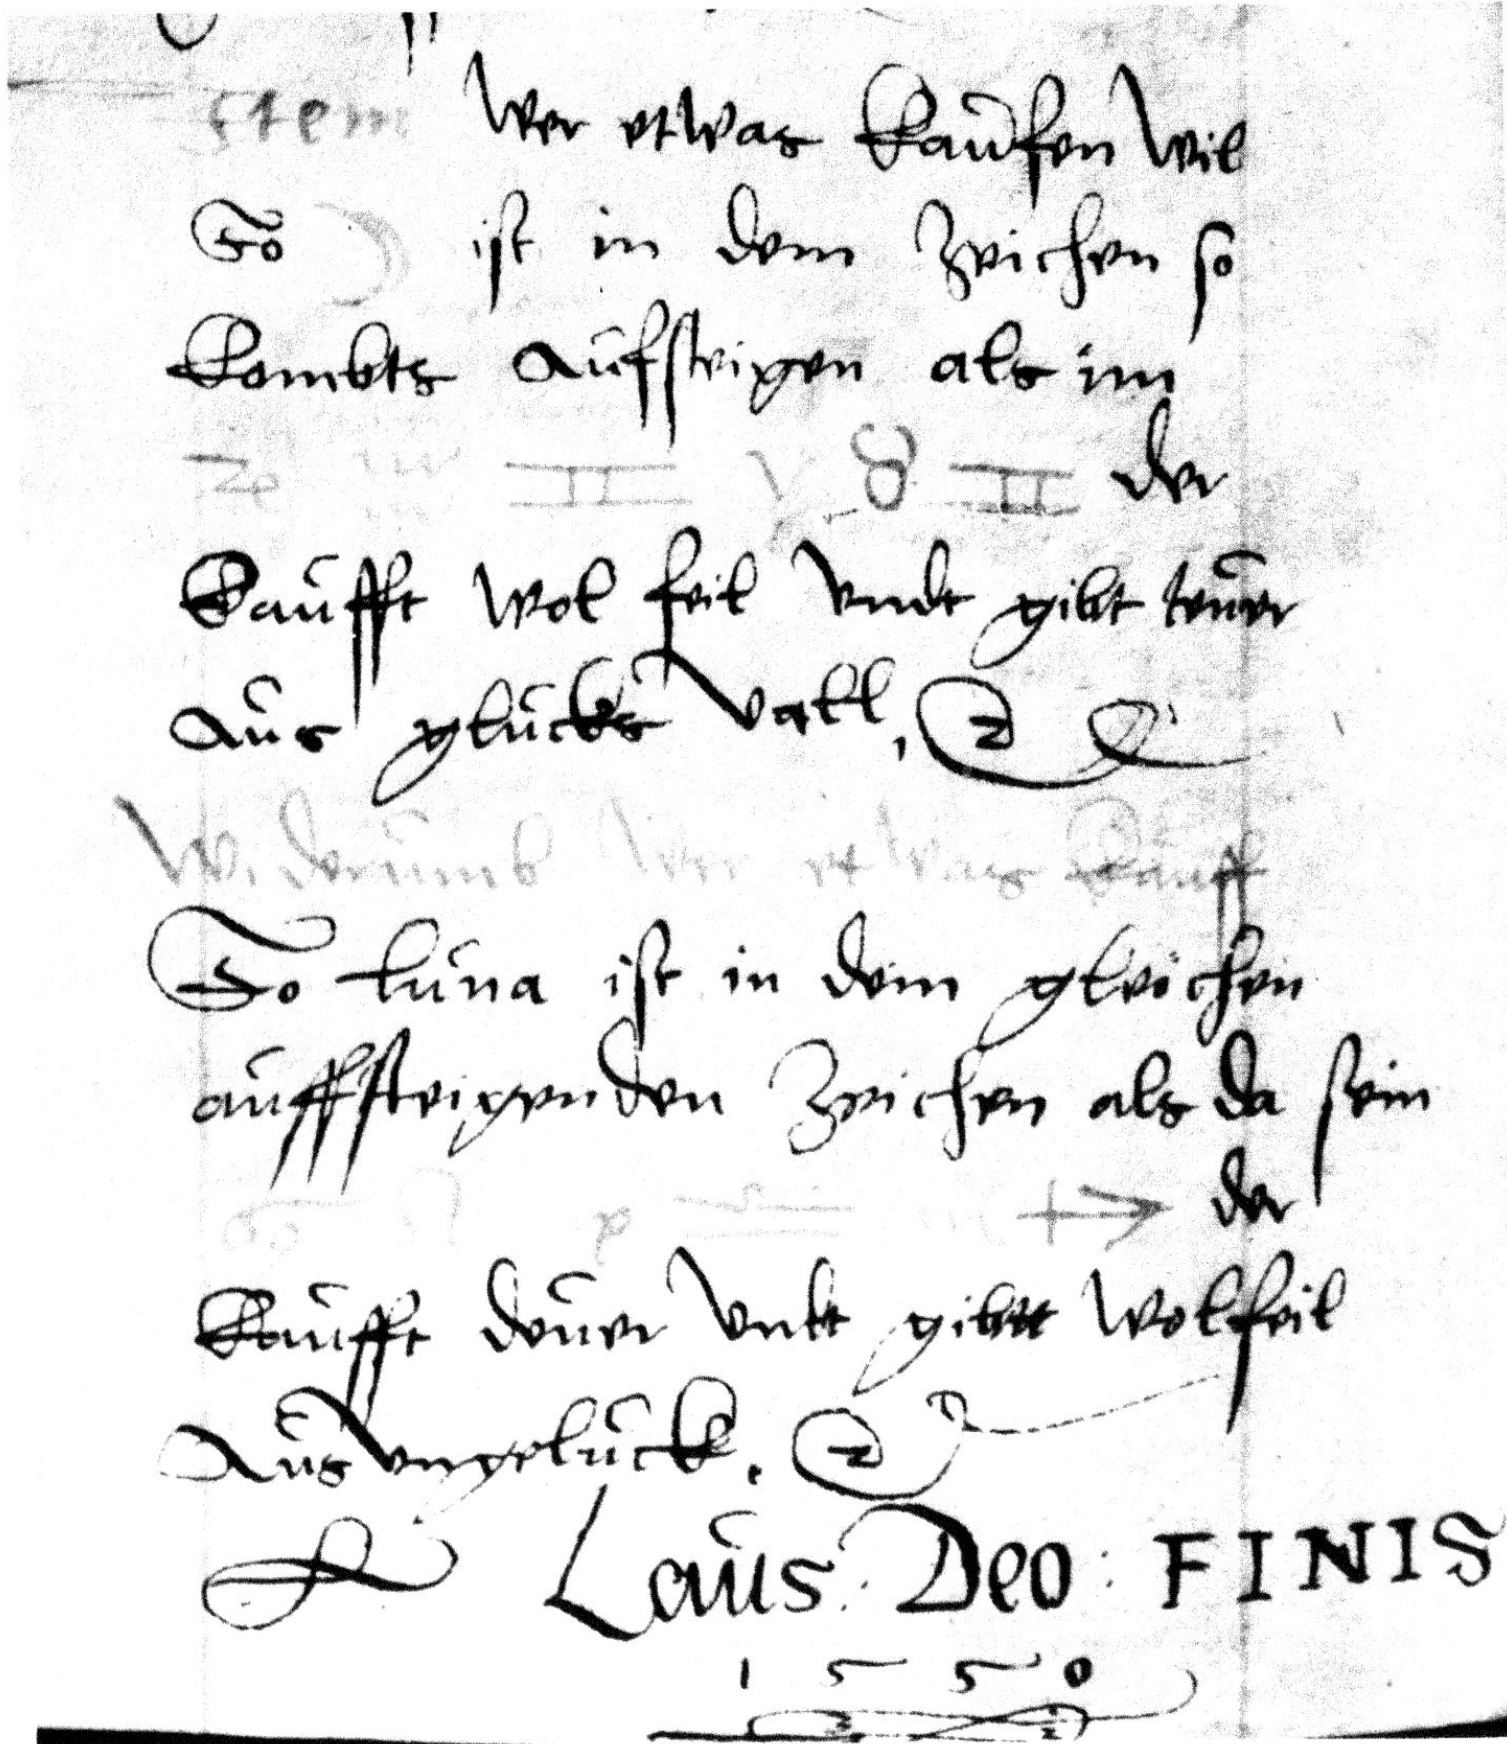 Item Wer etwas kaufen wil
So ☽ ist in dem Zeichen so
kombts aufsteigen als im
♒ ♓ ♈ ♉ ♊ der
kaufft wol feil vndt gibt teuer
aus glücks vall,
Widerumb wer etwas kaufft
So luna ist in dem gleichen
auffsteigenden Zeichen als da sein
♐ der
kaufft deuer vndt gibtt wolfeil
Aus vngelück.
Laus Deo FINIS
1550